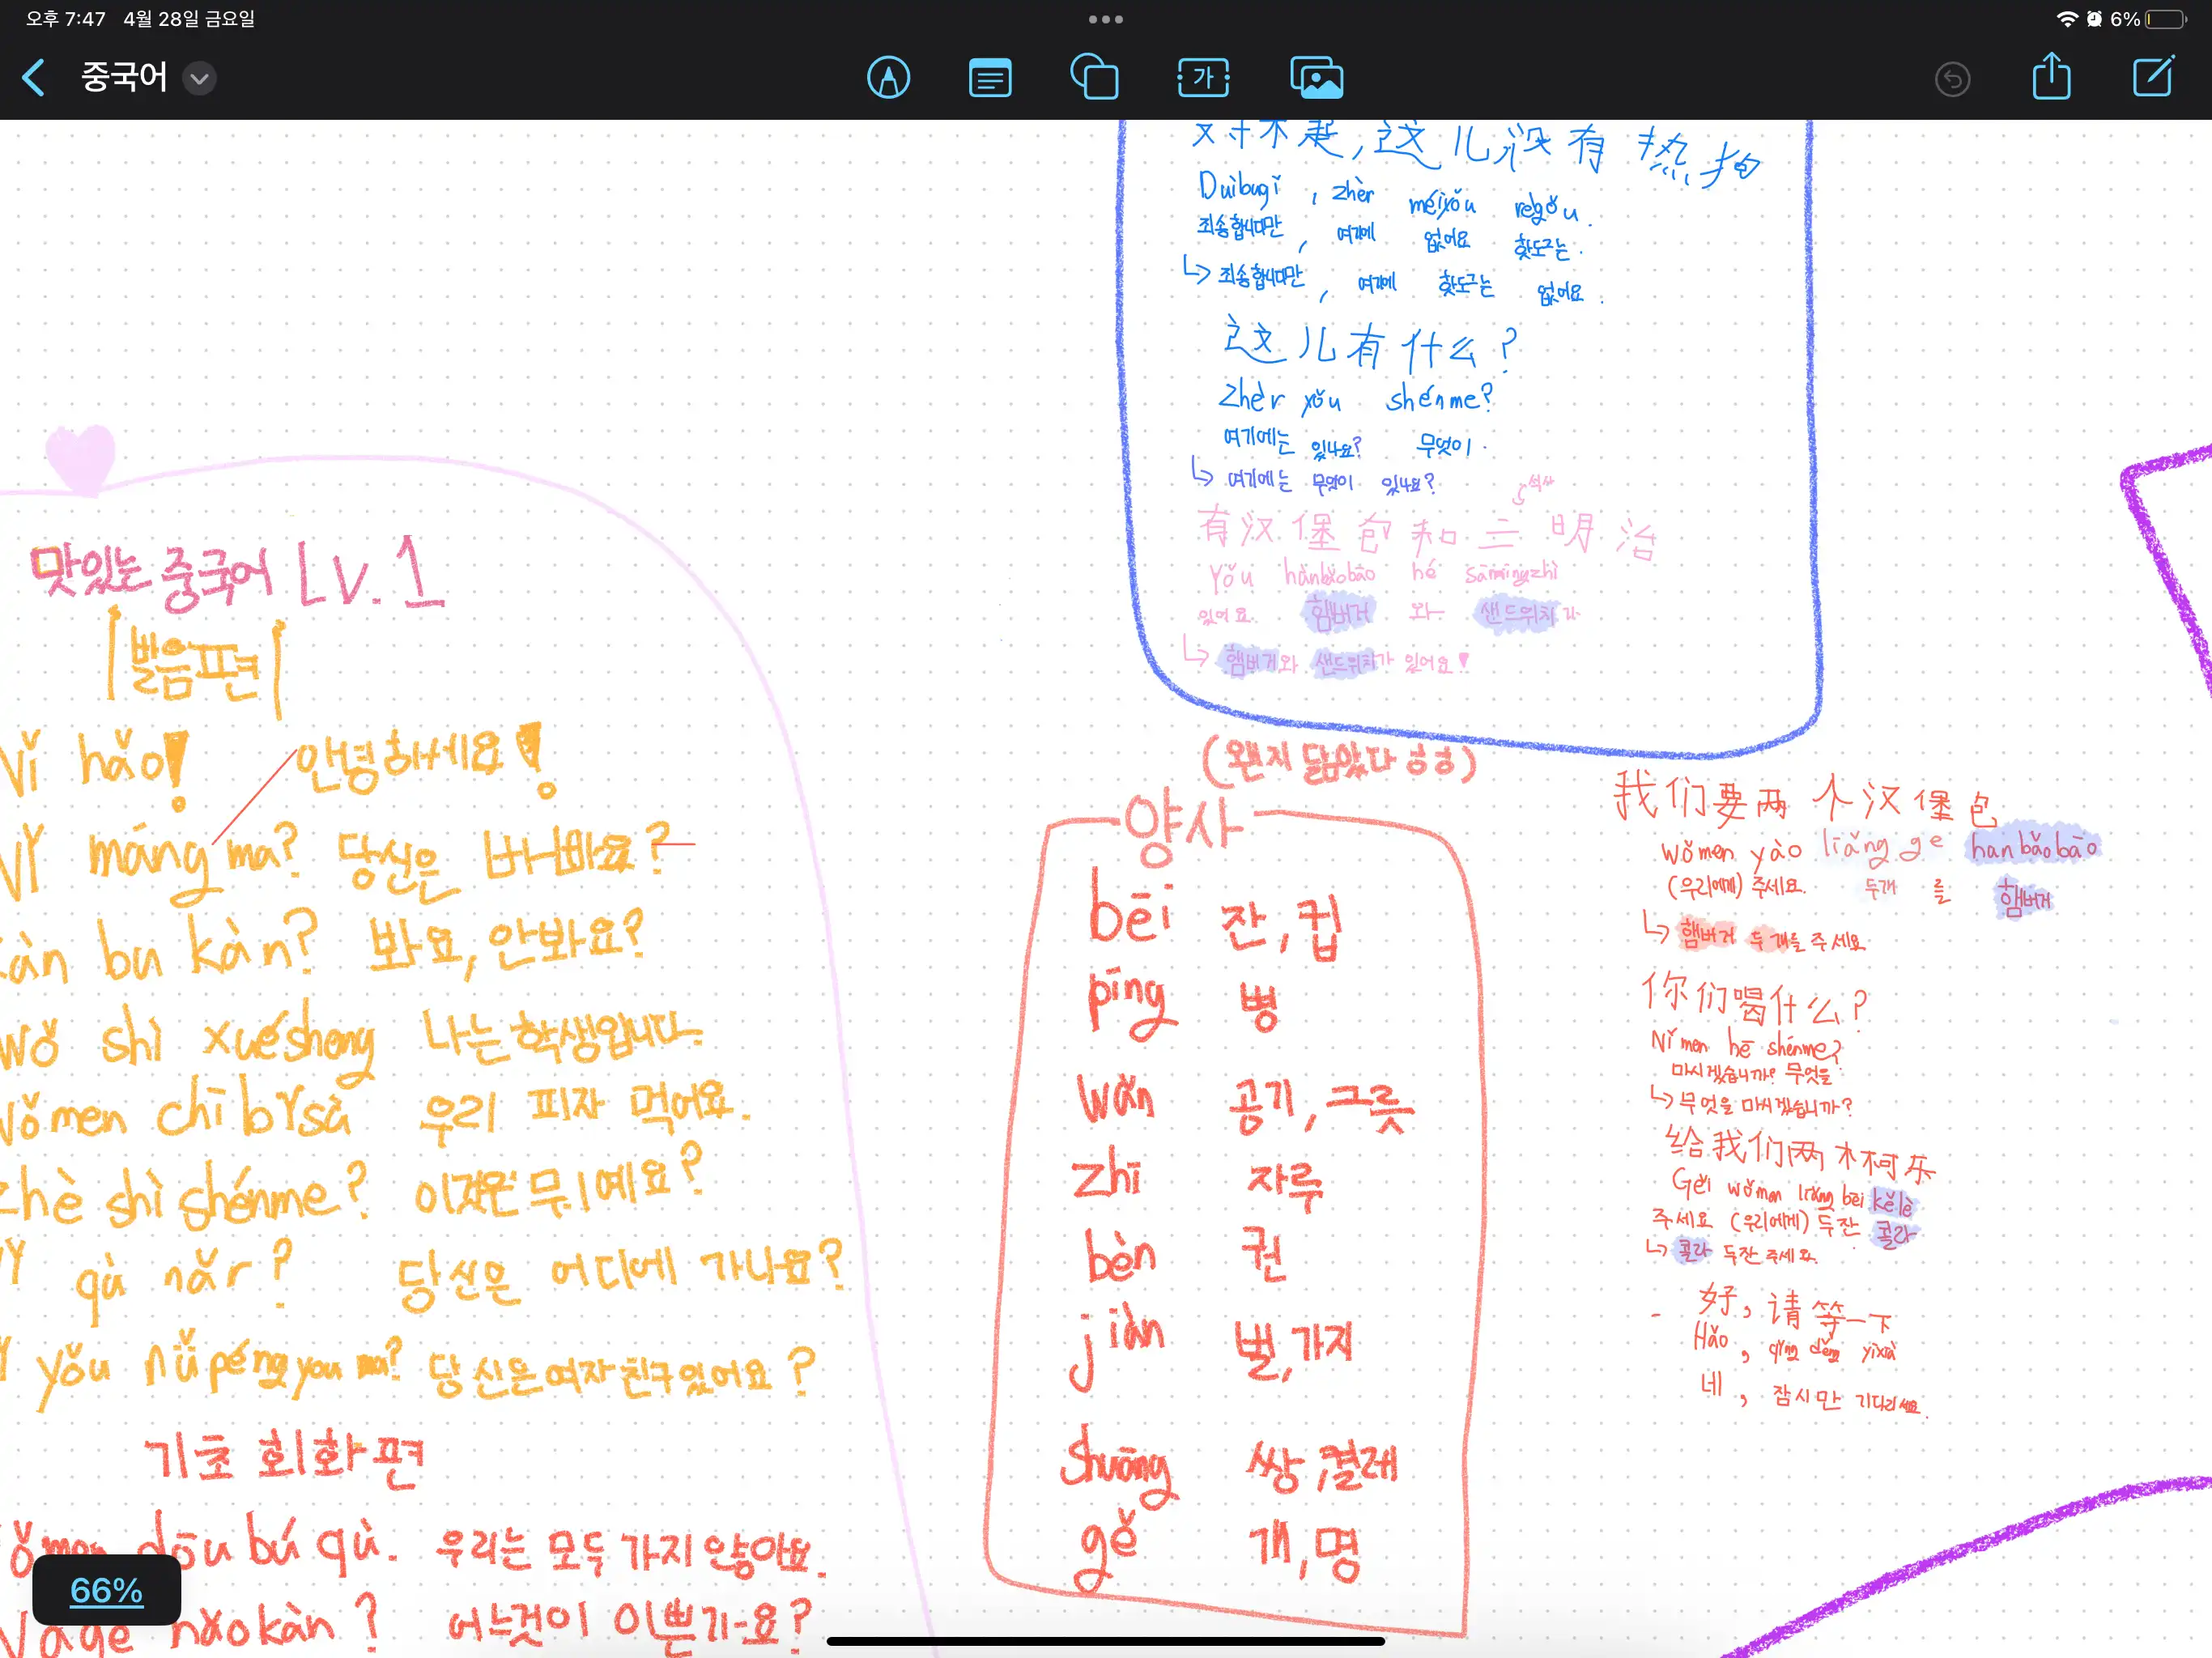 오후 7:47 4월 28일 금요일
6%
중국어
가
对不起,这儿没有热狗
Duìbuqǐ, zhèr méiyǒu règǒu.
죄송합니다만, 여기에 없어요 핫도그는.
↳ 죄송합니다만, 여기에 핫도그는 없어요.
这儿有什么?
Zhèr yǒu shénme?
여기에는 있나요? 무엇이.
↳ 여기에는 무엇이 있나요?
有汉堡包和三明治
Yǒu hànbǎobāo hé sānmíngzhì
있어요 햄버거 와 샌드위치가
↳ 햄버거와 샌드위치가 있어요!
맛있는 중국어 Lv. 1
|발음편|
Nǐ hǎo! 안녕하세요!
Nǐ máng ma? 당신은 바빠요?
kàn bu kàn? 봐요, 안봐요?
wǒ shì xuésheng 나는 학생입니다.
Wǒmen chī bǐsà 우리 피자 먹어요.
zhè shì shénme? 이것은 무엇예요?
qù nǎr? 당신은 어디에 가나요?
yǒu nǚpéngyou ma? 당신은 여자친구있어요?
기초 회화편
Wǒmen dōu bú qù. 우리는 모두 가지 않아요.
hǎokàn? 어느것이 이쁜가요?
66%
(왠지 닮았다 ㅎㅎ)
양사
bēi 잔, 컵
píng 병
wǎn 공기, 그릇
zhī 자루
běn 권
jiàn 벌, 가지
shuāng 쌍, 켤레
gě 개, 명
我们要两个汉堡包
wǒmen yào liǎng ge hànbǎobāo
(우리에게) 주세요. 두개 를 햄버거
↳ 햄버거 두개를 주세요
你们喝什么?
Nǐmen hē shénme?
마시겠습니까? 무엇을
↳ 무엇을 마시겠습니까?
给我们两杯可乐
Gěi wǒmen liǎng bēi kělè
주세요 (우리에게) 두잔 콜라
↳ 콜라 두잔 주세요.
- 好, 请等一下
Hǎo, qǐng děng yíxià
네, 잠시만 기다리세요.